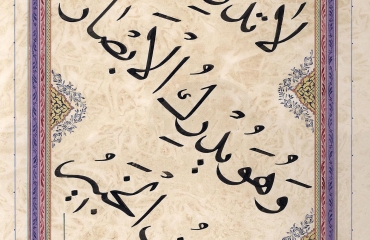 لَا
وَهُوَ يُدْرِكُ الْأَبْصَارَ
الْخَبِيرُ